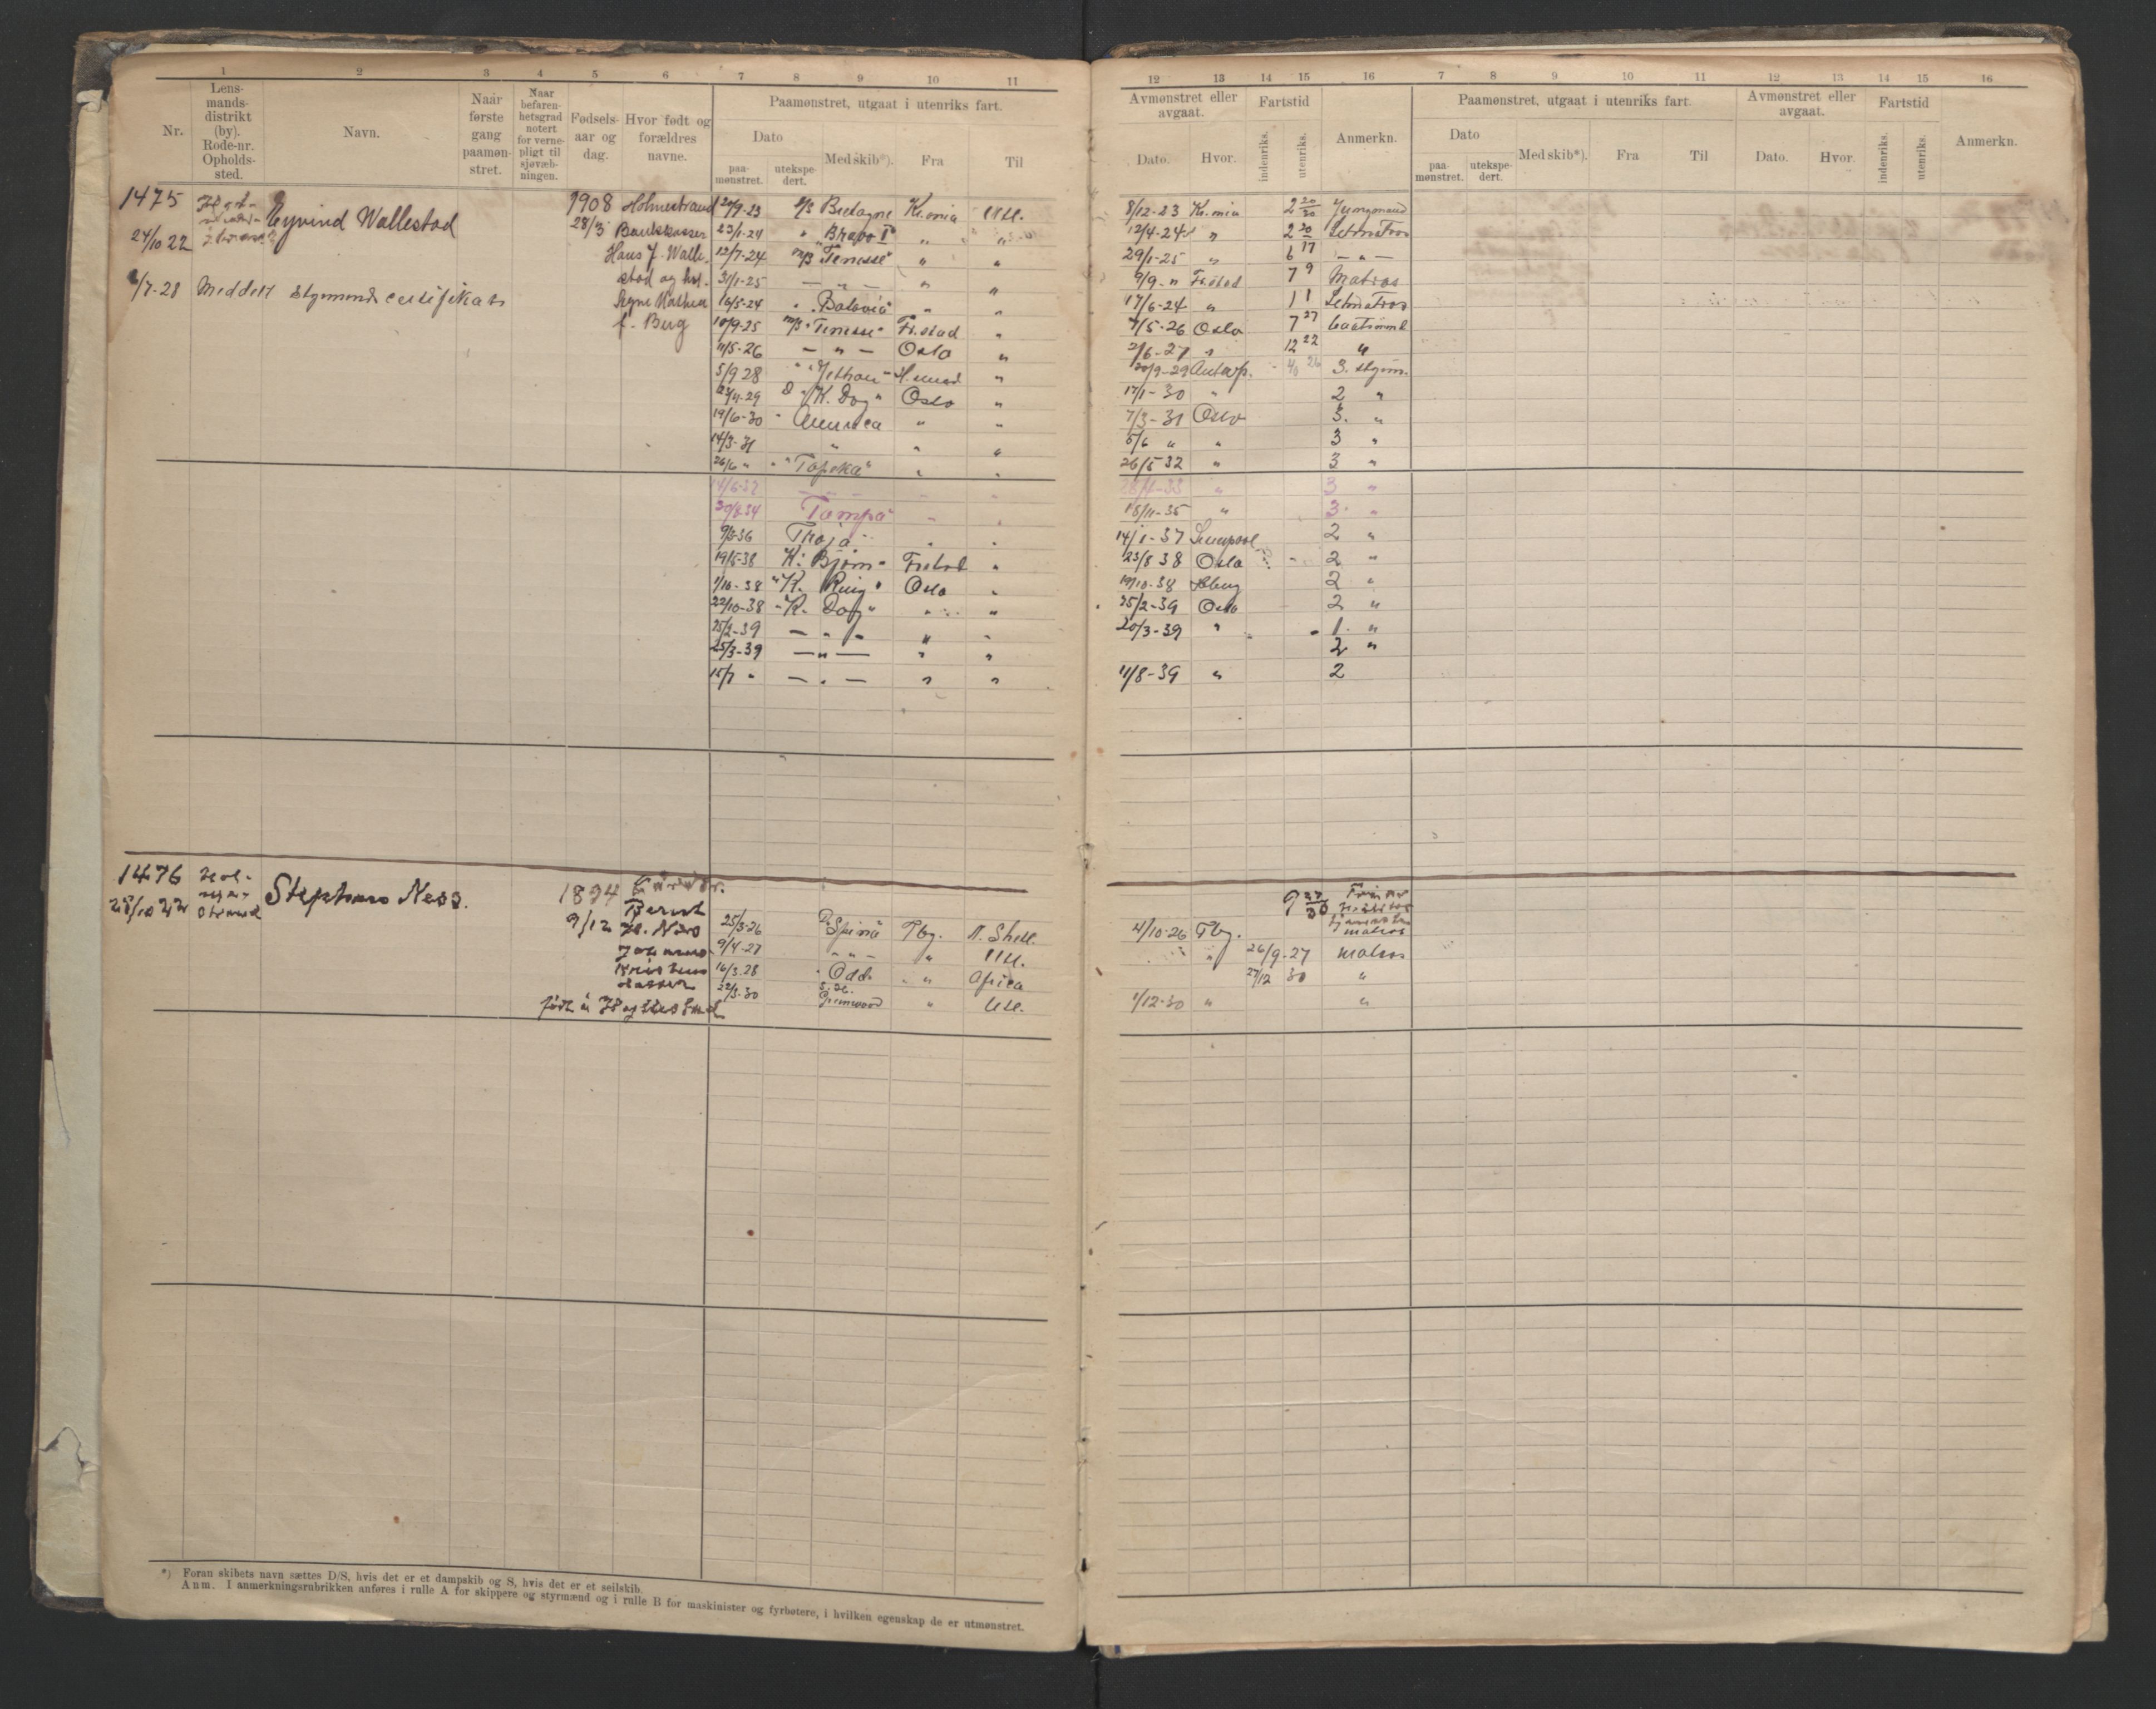 1 2 3 4 5 6 7 8 9 10 11
Nr. Lensmandsdistrikt (by). Rode-nr. Opholdssted. Navn. Naar første gang paamønstret. Naar befarenhetsgrad notert for vernepligt til sjøvæbningen. Fødselsaar og dag. Hvor født og forældres navne.
Paamønstret, utgaat i utenriks fart.
Dato paamønstret. utekspedert. Med skib*). Fra Til
1475 Eyvind Wallestad 1908 Holmestrand 20/9-23 Bretagne Kr.ania Utl.
24/10 22 28/3 Bankkasser 23/1-24 " Bravo I" " "
Hans J. Walle- 12/7-24 M/S "Tenesse" " "
stad og hst. 31/1-25 — " — " "
4/7-28 Meddelt styrmandscertifikat Signe 16/5-24 " Batavia" " "
f. Berg 10/9-25 M/S "Tenesse" Fr.stad "
11/5-26 — " — Oslo "
5/9 28 "
"K. Dag" Oslo "
19/6-30 " America " "
14/3-31 " " "
26/6 " " "Topeka" " "
14/6-32 — " —
Tampa
Troja " "
19/5-38 K. Bjørn " Fr.stad "
1/10-38 "K. Ring" Oslo "
22/10-38 "K. Dag" " "
25/2-39 — " — " "
25/3-39 — " — " "
15/7 " — " — " "
1476 Hol- Stephans Ness. 1894
25/10 22 strand 9/12 Bernt
H. Ness 25/3-26 Spinia Tbg. N. Shell.
9/4-27 — " — " Utl.
16/3.28 " Odd. " Africa
22/3-30 Grenwood " Utl.
født i
*) Foran skibets navn sættes D/S, hvis det er et dampskib og S, hvis det er et seilskib.
Anm. I anmerkningsrubrikken anføres i rulle A for skippere og styrmænd og i rulle B for maskinister og fyrbøtere, i hvilken egenskap de er utmønstret.
12 13 14 15 16 7 8 9 10 11 12 13 14 15 16
Avmønstret eller avgaat. Fartstid Anmerkn. Paamønstret, utgaat i utenriks fart. Avmønstret eller avgaat. Fartstid Anmerkn.
Dato. Hvor. indenriks. utenriks. Dato paamønstret. utekspedert. Med skib*). Fra Til Dato. Hvor. indenriks. utenriks.
8/12-23 Kr.ania 2 20/30 Jungmand
12/4-24 " 2 20/30 Letmatros
29/1-25 " 6 17 — " —
9/9 - " Fr.stad 7 9 Matros
17/6-24 " 1 1 Letmatros
7/5-26 Oslo 7 27
2/6-27 " 12 22 "
20/9-29 Antwp. 3. styrm.
17/1-30 " 2 "
7/3-31 Oslo 3. "
5/6 " " 3 "
26/5-32 " 3 "
28/4-33 " 3 "
15/11-35 " 3. "
14/1-37 Liverpool 2 "
23/8 38 Oslo 2 "
19/10-38 2 "
25/2-39 Oslo 2 "
20/3-39 " 1. "
2 "
11/8-39 " 2
matros
4/10-26 Tbg.
" 26/9-27 matros
27/12 30 "
1/12-30 " "